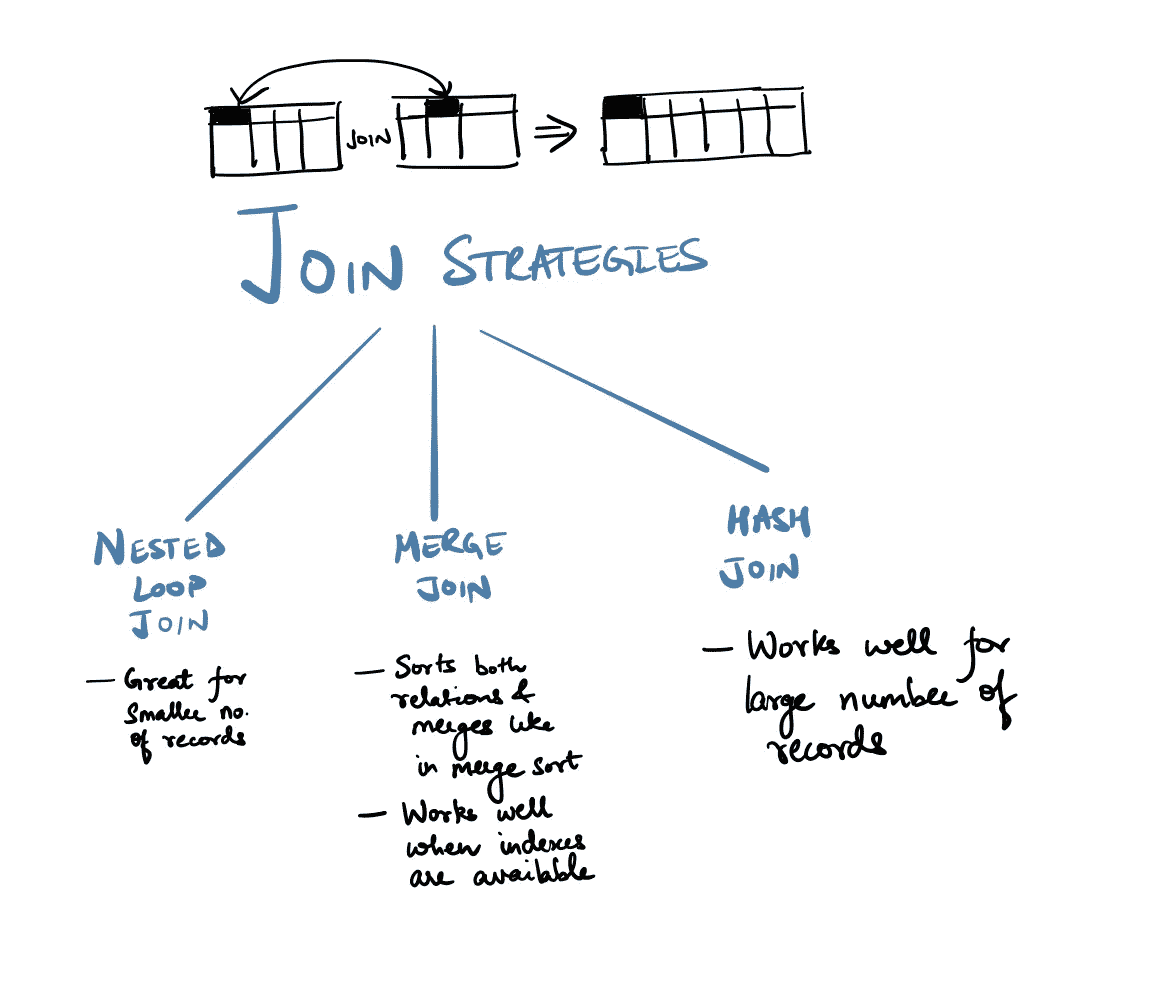 JOIN
JOIN STRATEGIES
NESTED
LOOP
JOIN
— Great for
Smaller no.
of records
MERGE
JOIN
— Sorts both
relations &
merges like
in merge sort
— Works well
when indexes
are available
HASH
JOIN
— Works well for
large number of
records